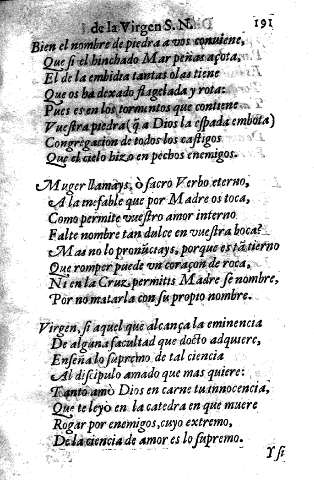 de la Virgen S.N. 191
Bien el nombre de piedra a vos conuiene,
Que si el hinchado Mar peñas açota,
El de la embidia tantas olas tiene
Que os ha dexado flagelada y rota:
Pues es en los tormentos que contiene
Vuestra piedra (q̃ a Dios la espada embota)
Congregacion de todos los castigos
Que el cielo hizo en pechos enemigos.
Muger llamays, ò sacro Verbo eterno,
A la inefable que por Madre os toca,
Como permite vuestro amor interno
Falte nombre tan dulce en vuestra boca?
Mas no lo pronũciays, porque es tã tierno
Que romper puede vn coraçon de roca,
Ni en la Cruz permitis Madre se nombre,
Por no matarla con su propio nombre.
Virgen, si aquel que alcança la eminencia
De alguna facultad que docto adquiere,
Enseña lo supremo de tal ciencia
Al discipulo amado que mas quiere:
Tanto amò Dios en carne tu innocencia,
Que te leyò en la catedra en que muere
Rogar por enemigos, cuyo extremo,
De la ciencia de amor es lo supremo.
Y si